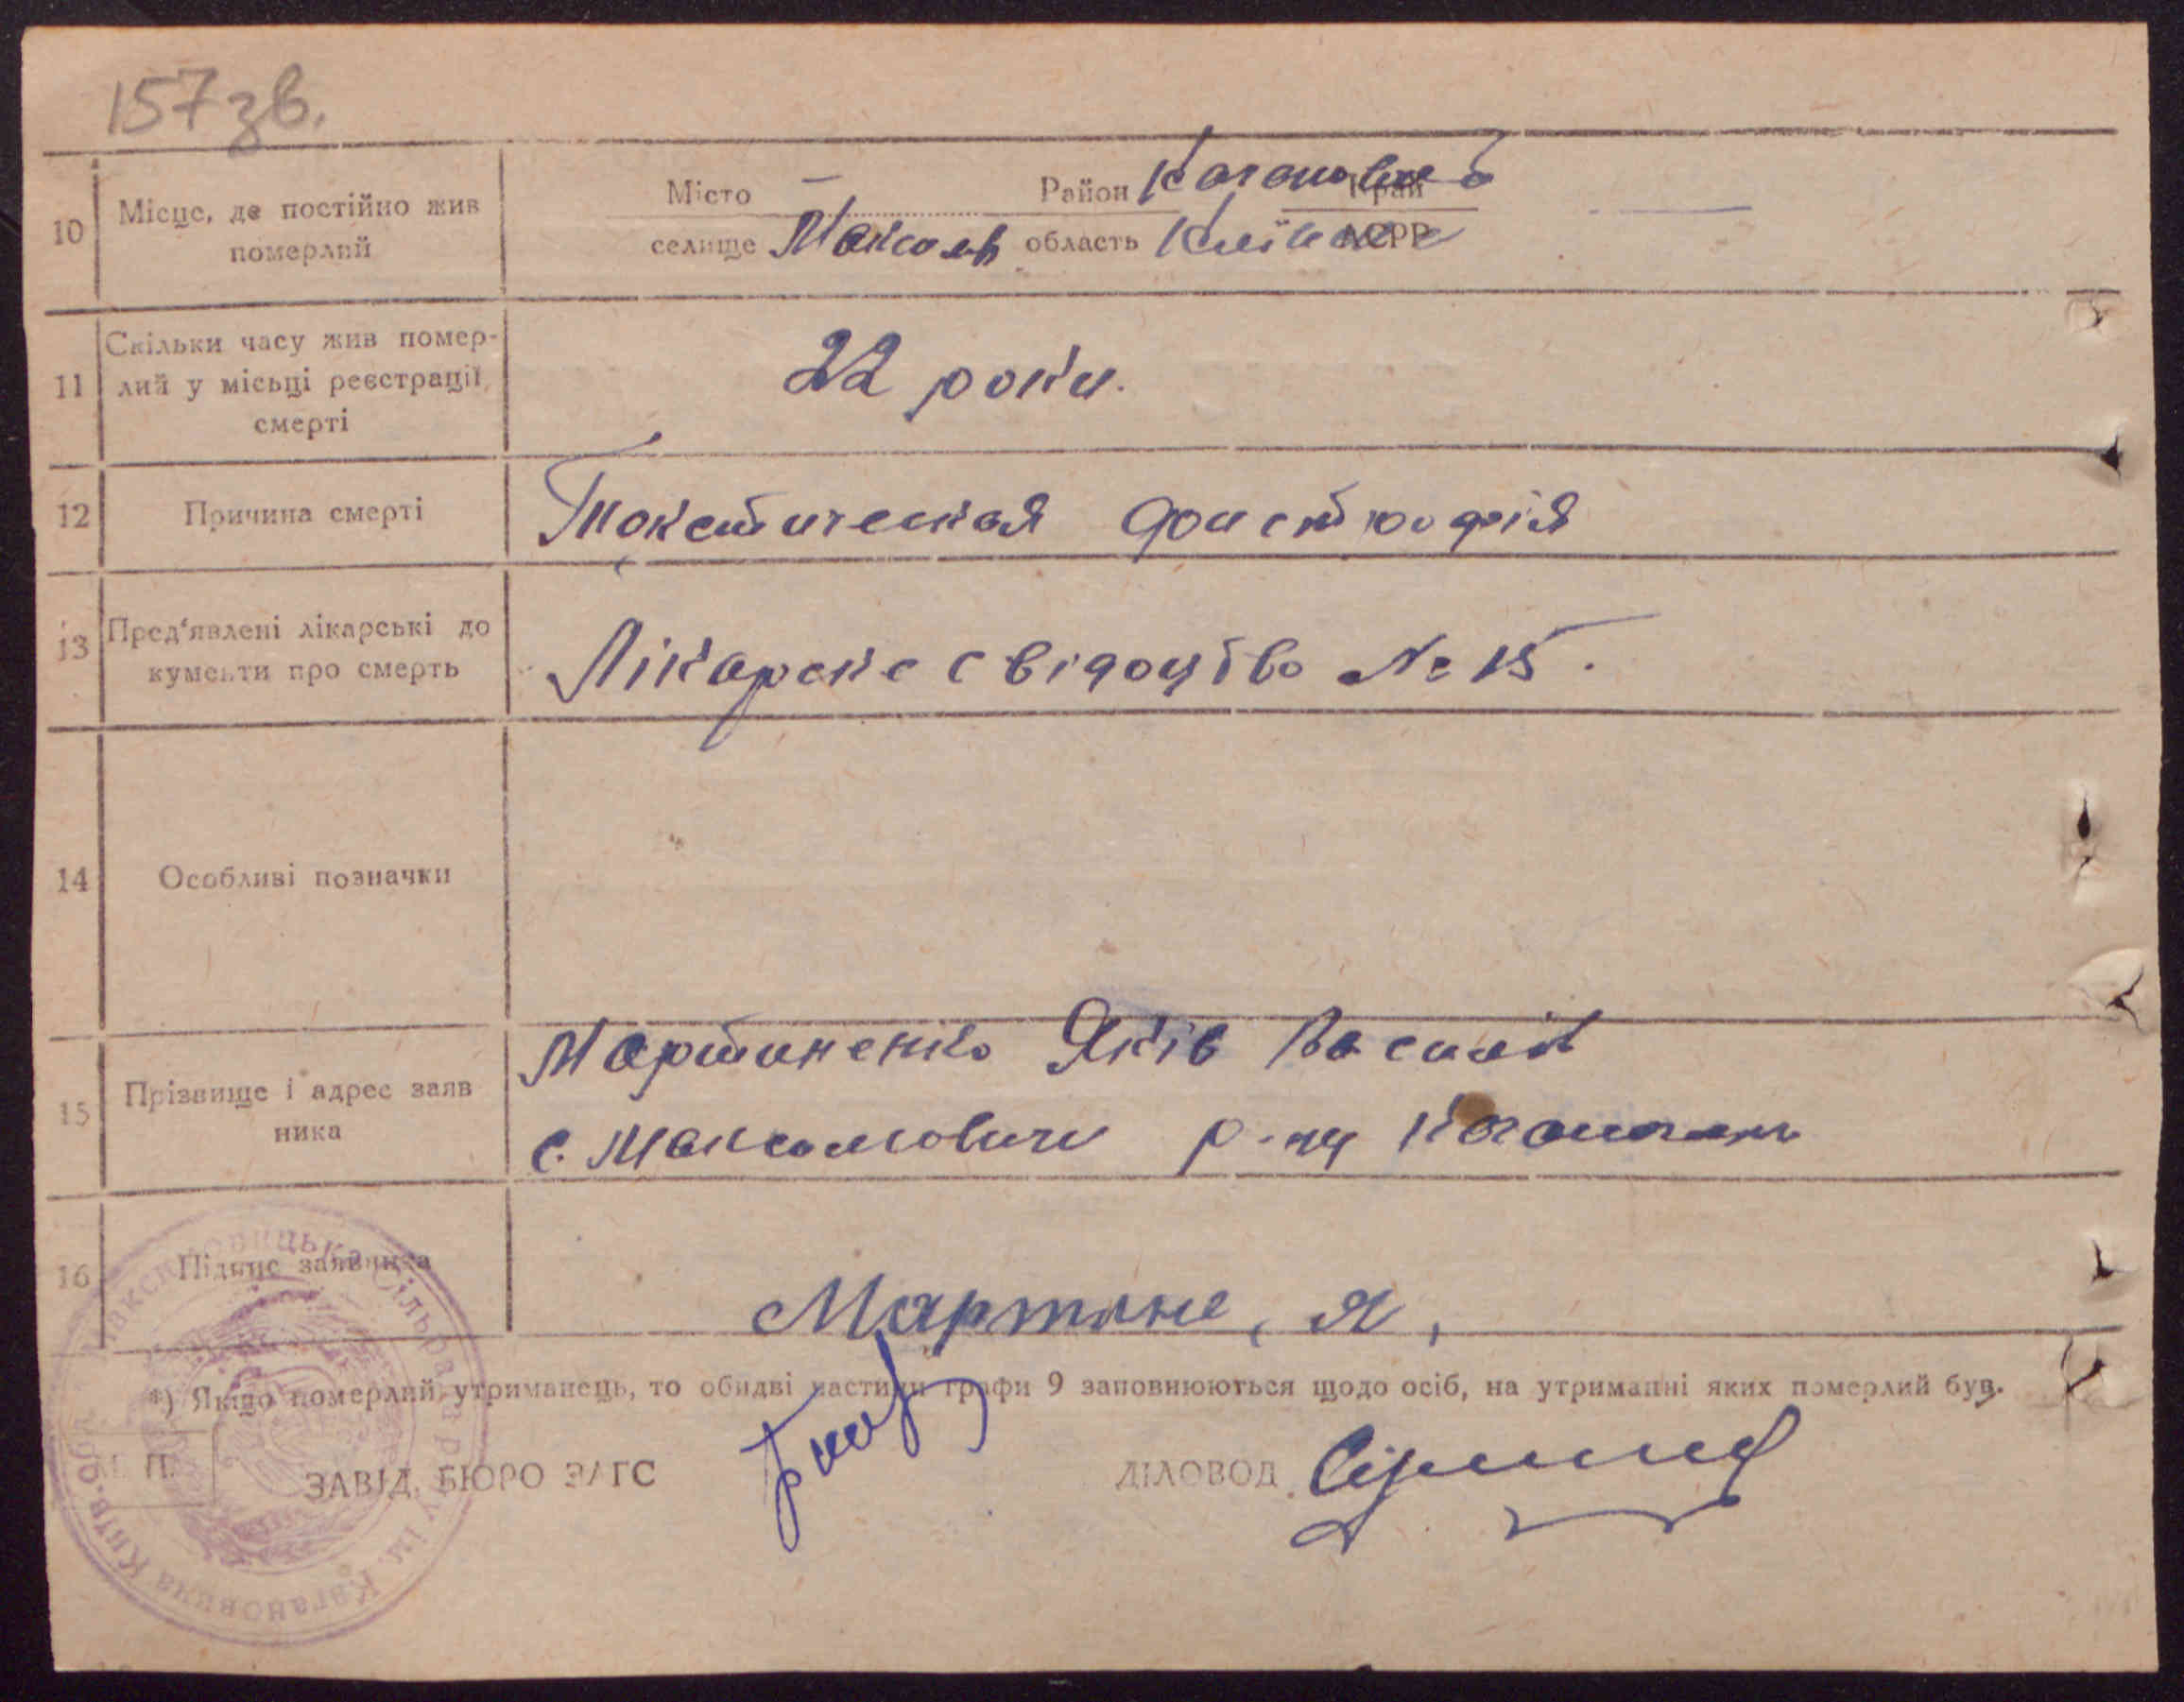 157 зв.
10 Місце, де постійно жив померлий
Місто — Район Кагановичс Край —
селище Максом область Київська АСРР
11 Скільки часу жив помер-
лий у місьці реєстрації
смерті
22 роки.
12 Причина смерті
Токстическая
13 Пред'явлені лікарські до
кументи про смерть
Лікарске свідоцтво № 15.
14 Особливі позначки
15 Прізвище і адрес заяв
ника
Мартиненко Яків Василів
с. Максомовичи р-ну
16 Підпис заявника
Мартыне, Я,
*) Якщо померлий утриманець, то обидві частини графи 9 заповнюються щодо осіб, на утриманні яких померлий був.
М. П.
ЗАВІД. БЮРО ЗАГС
ДІЛОВОД
сільрада р-ну ім. Кагановича Київ. обл.